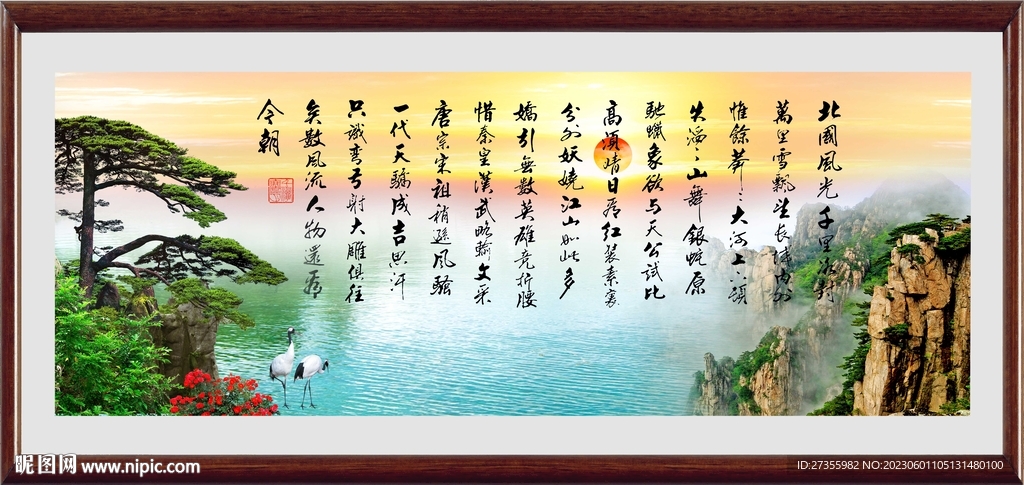 北國風光千里冰封
萬里雪飄望長城內外
惟餘莽〻大河上下頓
失滔〻山舞銀蛇原
馳蠟象欲与天公試比
高須晴日看红装素裹
分外妖嬈江山如此多
嬌引無數英雄竞折腰
惜秦皇漢武略输文采
唐宗宋祖稍遜風騷
一代天驕成吉思汗
只識弯弓射大雕俱往
矣數風流人物還看
今朝
昵图网 www.nipic.com
ID:27355982 NO:20230601105131480100